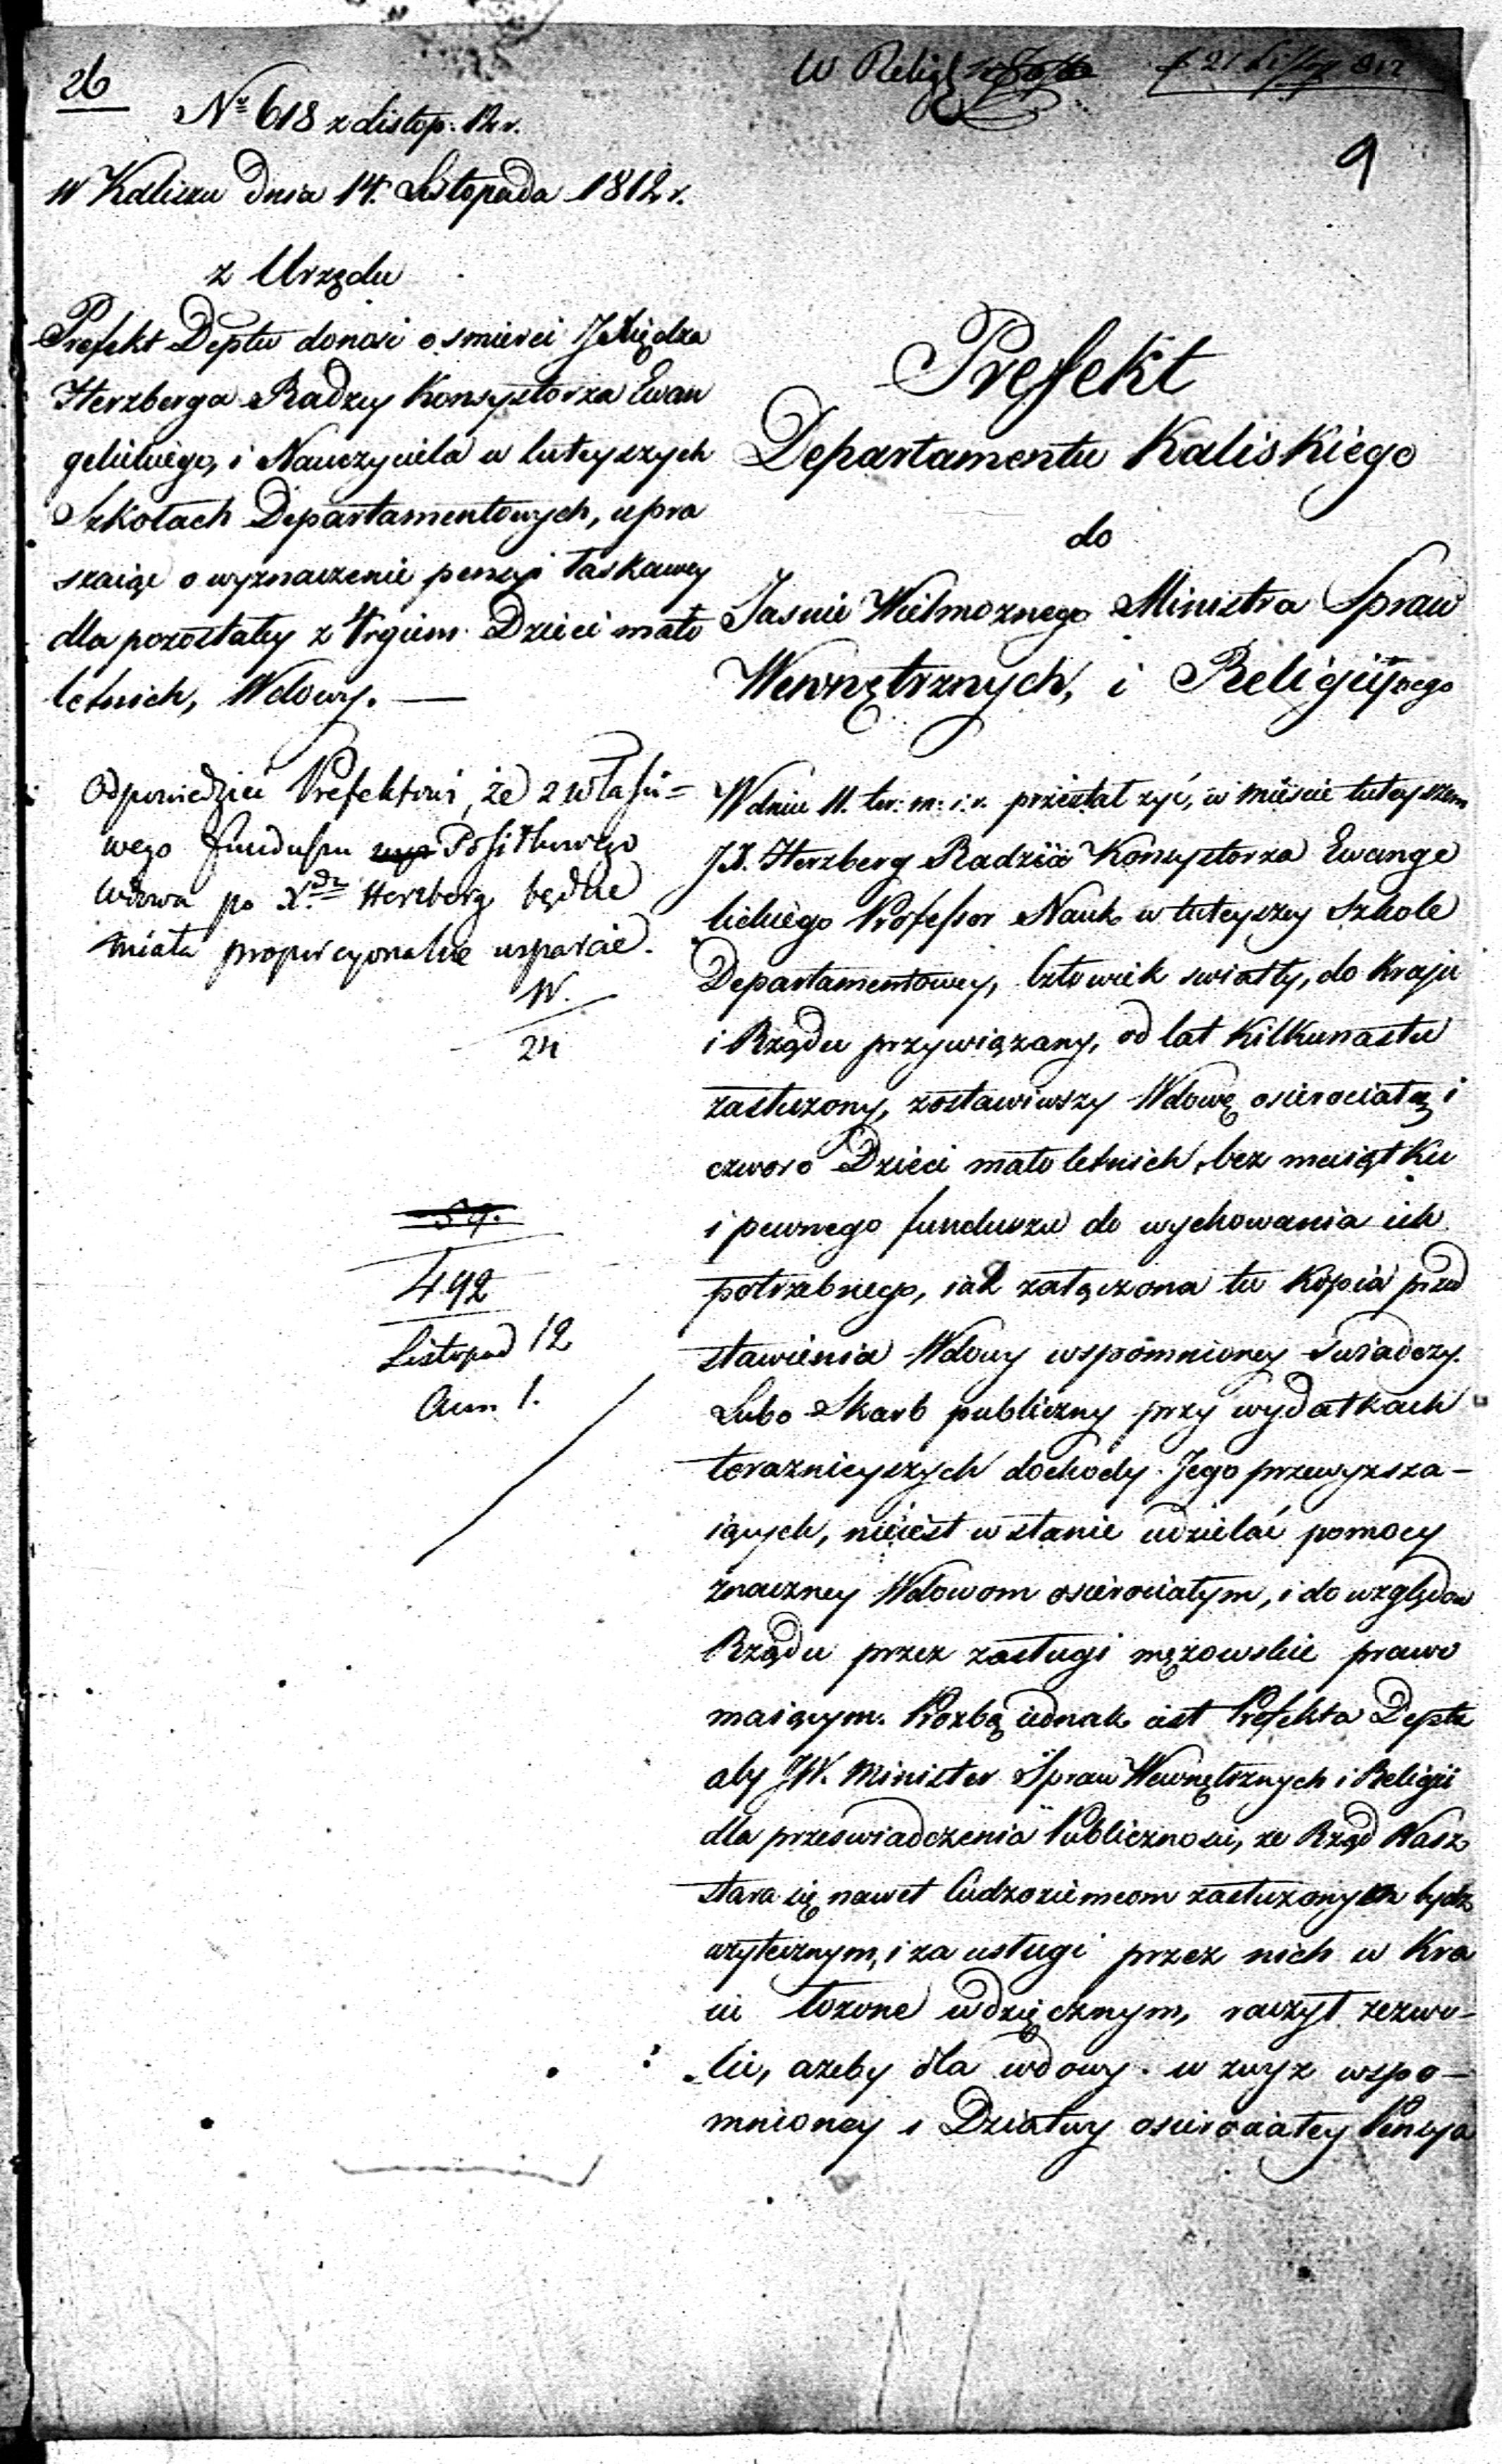 26
W Relig
9
Nº 618 z Listop: 12 r.
W Kaliszu dnia 14. Listopada 1812 r.
z Urzędu
Prefekt Deptu donosi o smierci JXiędza
Herzberga Radzcy Konsystorza Ewan
gelickiego, i Nauczyciela w tuteyszych
Szkołach Departamentowych, upra
szaiąc o wyznaczenie pensyi łaskawey
dla pozostałey z 4rgiem Dzieci mało
letnich, Wdowy. —
Odpowiedzieć Prefektowi, że z właści=
wego funduszu Posiłkowego
wdowa po X.dzu Herzberg będzie
miała proporcyonalne wsparcie.
W.
24
59.
492
Listopad 12
Ann 1.
Prefekt
Departamentu Kaliskiego
do
Jasnie Wielmoznego Ministra Spraw
Wewnętrznych, i Religijnego
W dniu 11. ter: m: i. r. przestał zyć, w mieście tuteyszem
JX. Herzberg Radzca Konsystorza Ewange
lickiego Professor Nauk w tuteyszey Szkole
Departamentowey, Człowiek swiatły, do Kraju
i Rządu przywiązany, od lat Kilkunastu
zasłuzony, zostawiwszy Wdowę osierociałą i
czworo Dzieci mało letnich, bez maiątku
i pewnego funduszu do wychowania ich
potrzebnego, iak załączona tu Kopia przed
stawienia Wdowy wspomnioney swiadczy.
Lubo Skarb publiczny przy wydatkach
teraznieyszych dochody Jego przewyzsza-
iących, nieiest w stanie udzielać pomocy
znaczney Wdowom osierociałym, i do względów
Rządu przez zasługi męzowskie prawo
maiącym. Prozbą iednak iest Prefekta Deptu
aby JW. Minister Spraw Wewnętrznych i Religii
dla przeswiadczenia Publicznosci, ze Rząd Nasz
stara się nawet Cudzoziemcom zasłuzonym bydz
uzytecznym, i za usługi przez nich w Kra
iu łozone wdzięcznym, raczył zezwo-
lić, azeby dla wdowy w zwyz wspo-
mnioney i Dziatwy osierociałey Pensya